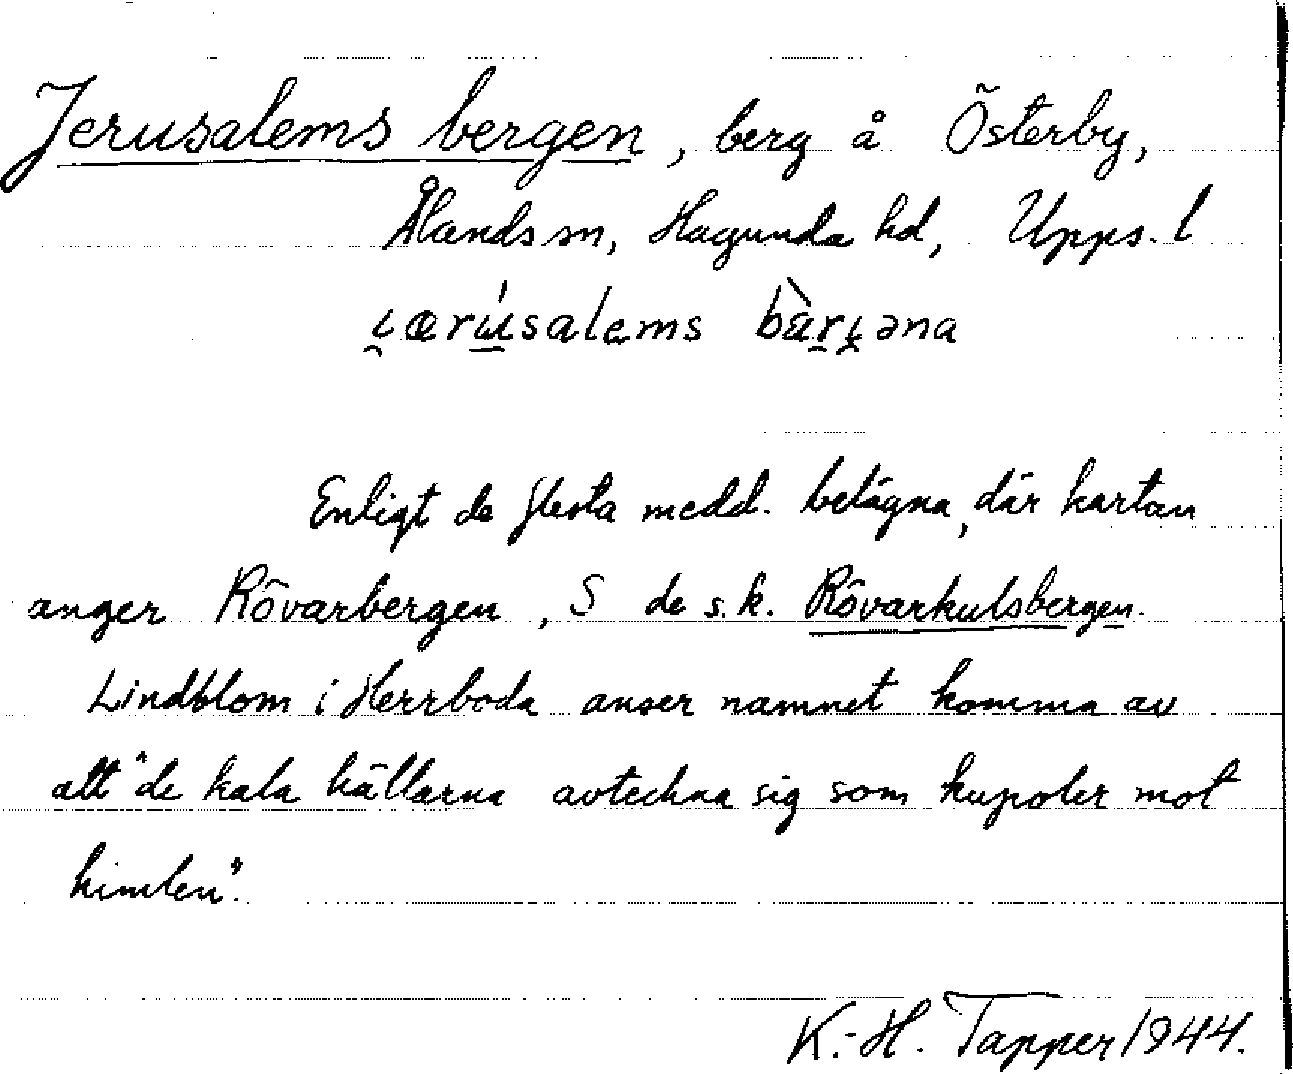 Jerusalems bergen, berg å Österby,
Ålands sn, Hagunda hd, Upps. l
i̯ærúsalems bàri̯əna
Enligt de flesta medd. belägna, där kartan
anger Rövarbergen, S de s.k. Rövarkulsbergen.
Lindblom i Herrboda anser namnet komma av
att "de kala hällarna avteckna sig som kupoler mot
himlen".
K.-H. Tapper 1944.